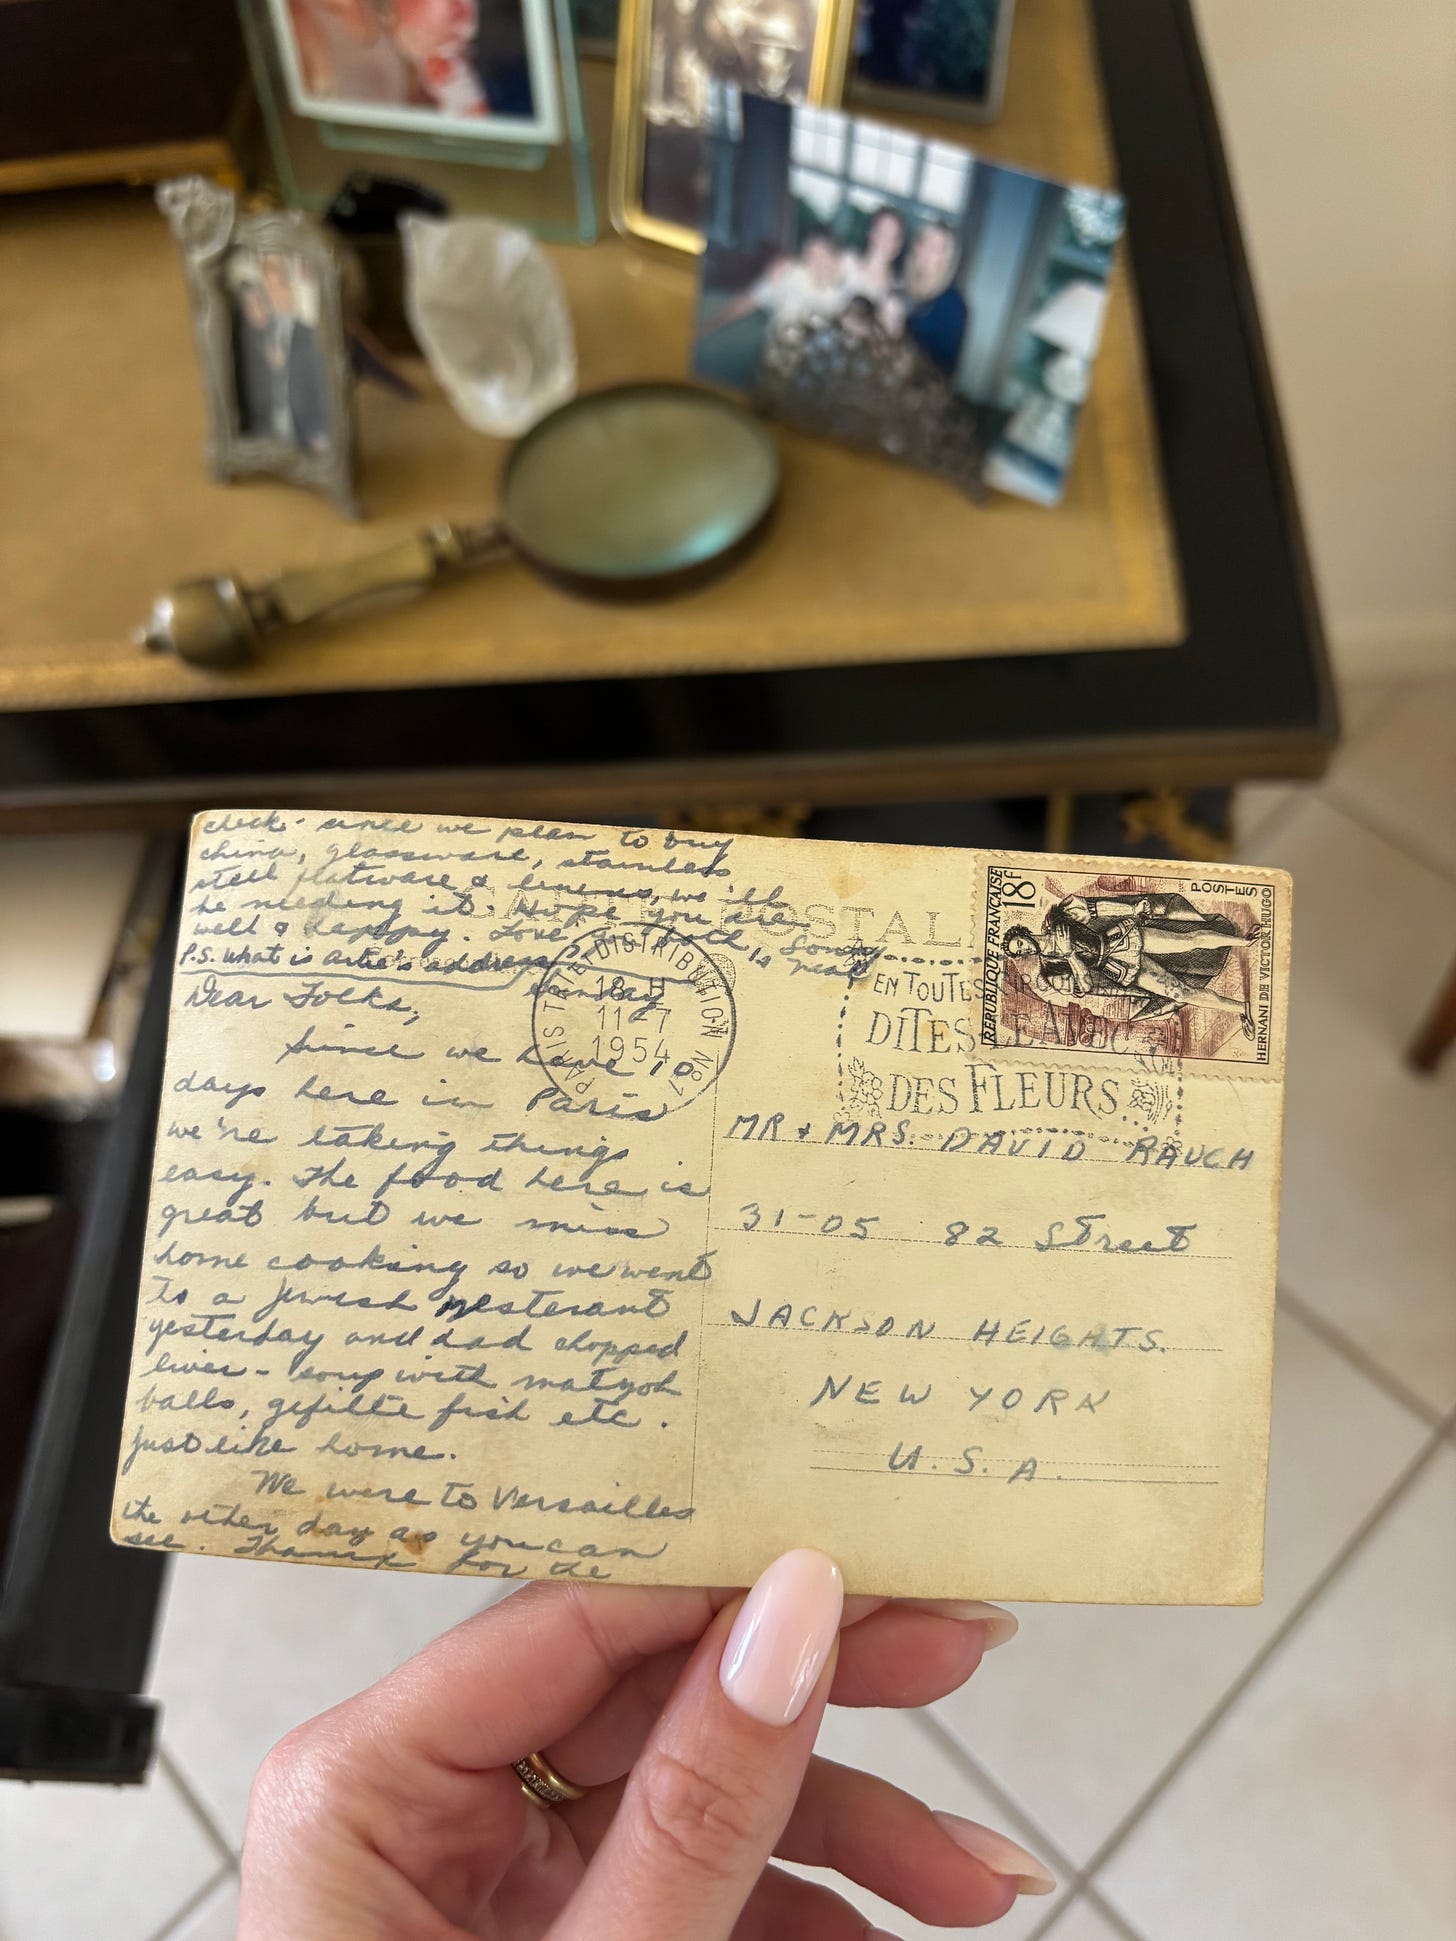 Sunday
Dear Folks,
Since we have 10
days here in Paris
we're taking things
easy. The food here is
great but we miss
home cooking so we went
to a Jewish resterant
yesterday and had chopped
liver - soup with matzoh
balls, gefilte fish etc.
Just like home.
We were to Versailles
the other day as you can
see. Thanx for the
check - since we plan to buy
china, glassware, stainless
steel flatware & linens, we'll
be needing it. Hope you are
well & happy. Love
P.S. What is Artie's address?
CARTE POSTALE
PARIS TRI ET DISTRIBUTION Nº 1
18 H
11-7
1954
EN TOUTES CIRCONSTANCES
DITES LE AVEC
DES FLEURS
REPUBLIQUE FRANÇAISE
18F
POSTES
HERNANI DE VICTOR HUGO
MR & MRS. DAVID RAUCH
31-05 82 Street
JACKSON HEIGHTS.
NEW YORK
U.S.A.